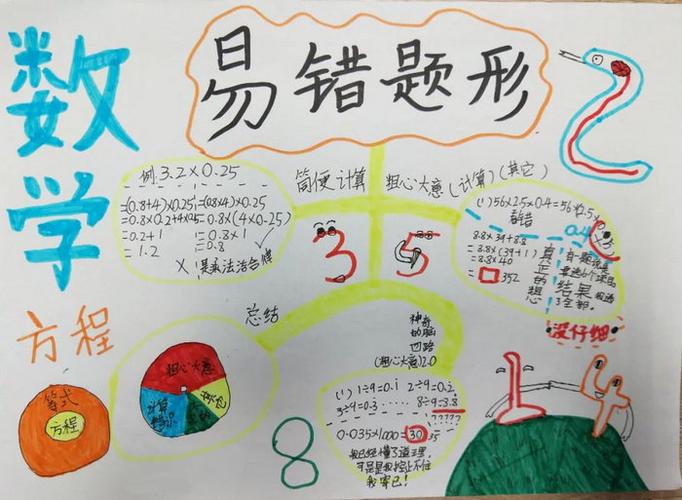 数学
易错题形
方程
等式
方程
例3.2×0.25
=(0.8+4)×0.25
=0.8×0.2+4×0.25
=0.2+1
=1.2
×
=(0.8×4)×0.25
=0.8×(4×0.25)
=0.8×1
=0.8
简便计算
粗心大意(计算)(其它)
3
5
2
(1)56×2.5×0.4=56×2.5×
0.4
8.8×39+8.8
=8.8×(39+1)
=8.8×40
=352
真正的想
结果
没仔细
总结
粗心大意
计算
神奇
的脑
回路
(粗心大意)2.0
(1)1÷9=0.i 2÷9=0.2
3÷9=0.3 ······ 8÷9=3.8
?????
0.035×1000=30035
我已经懂了道理,
可是是我控止不住
我寄已!
8
1
4